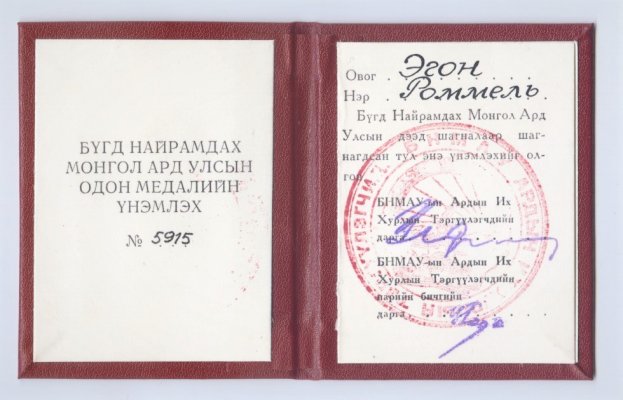 БҮГД НАЙРАМДАХ
МОНГОЛ АРД УЛСЫН
ОДОН МЕДАЛИЙН
ҮНЭМЛЭХ
№ 5915
Овог Эгон
Нэр Роммель
Бүгд Найрамдах Монгол Ард
Улсын дээд шагналаар шаг-
нагдсан тул энэ үнэмлэхийг ол-
гов
БНМАУ-ын Ардын Их
Хурлын Тэргүүлэгчдийн
дарга
БНМАУ-ын Ардын Их
Хурлын Тэргүүлэгчдийн
нарийн бичгийн
дарга